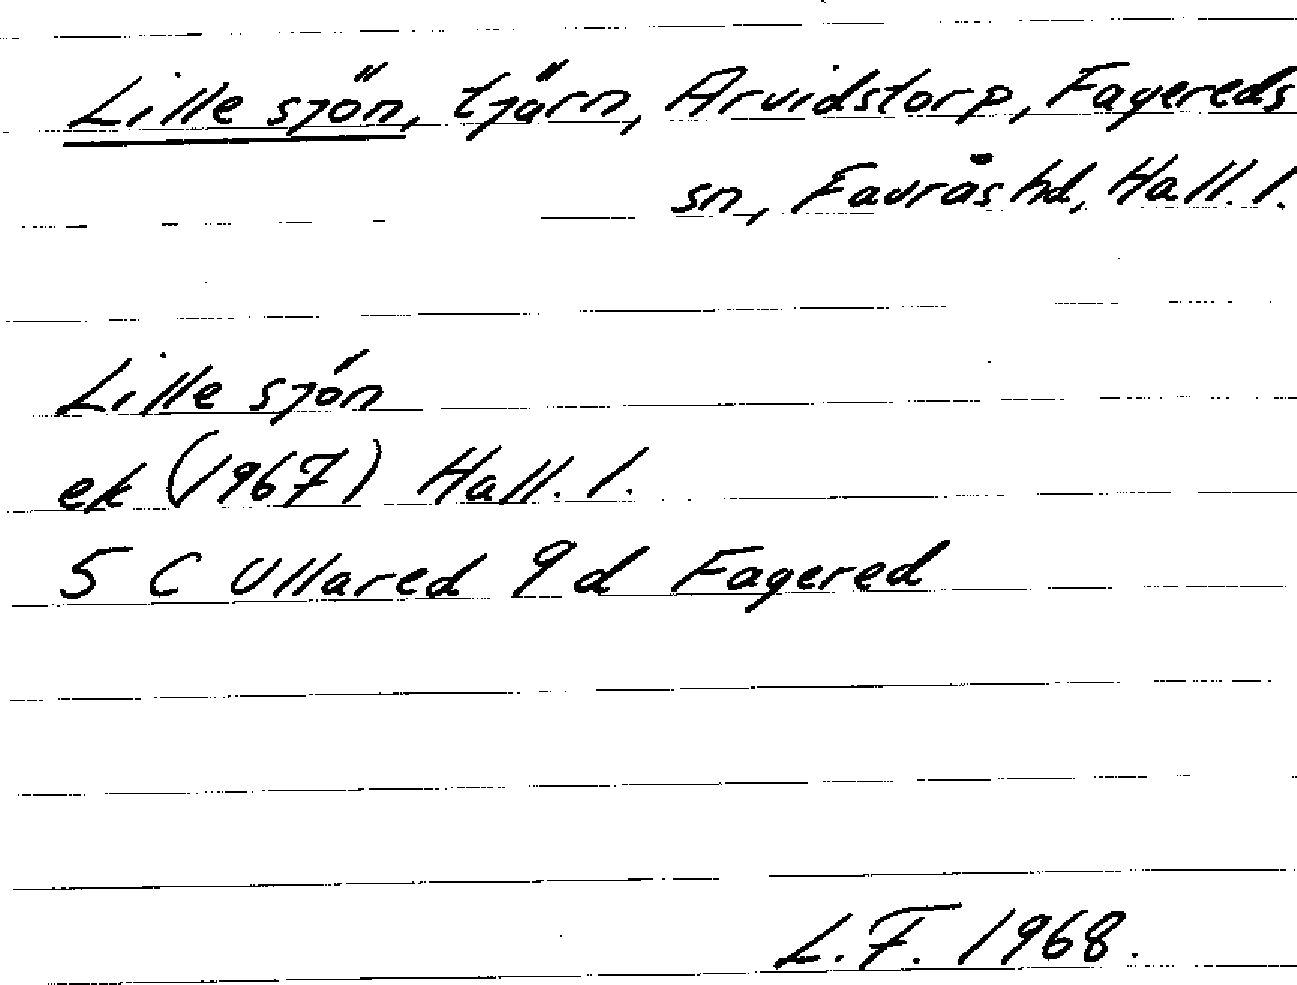 Lille sjön, tjärn, Arvidstorp, Fagereds
sn, Faurås hd, Hall. l.
Lille sjön
ek (1967) Hall. l.
5 C Ullared 9 d Fagered
L.F. 1968.